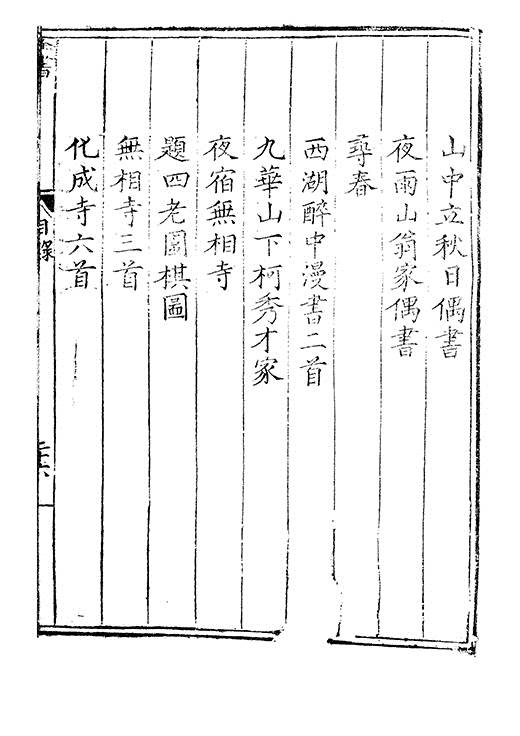 山中立秋日偶書
夜雨山翁家偶書
尋春
西湖醉中漫書二首
九華山下柯秀才家
夜宿無相寺
題四老圍棋圖
無相寺三首
化成寺六首
目錄
二十六